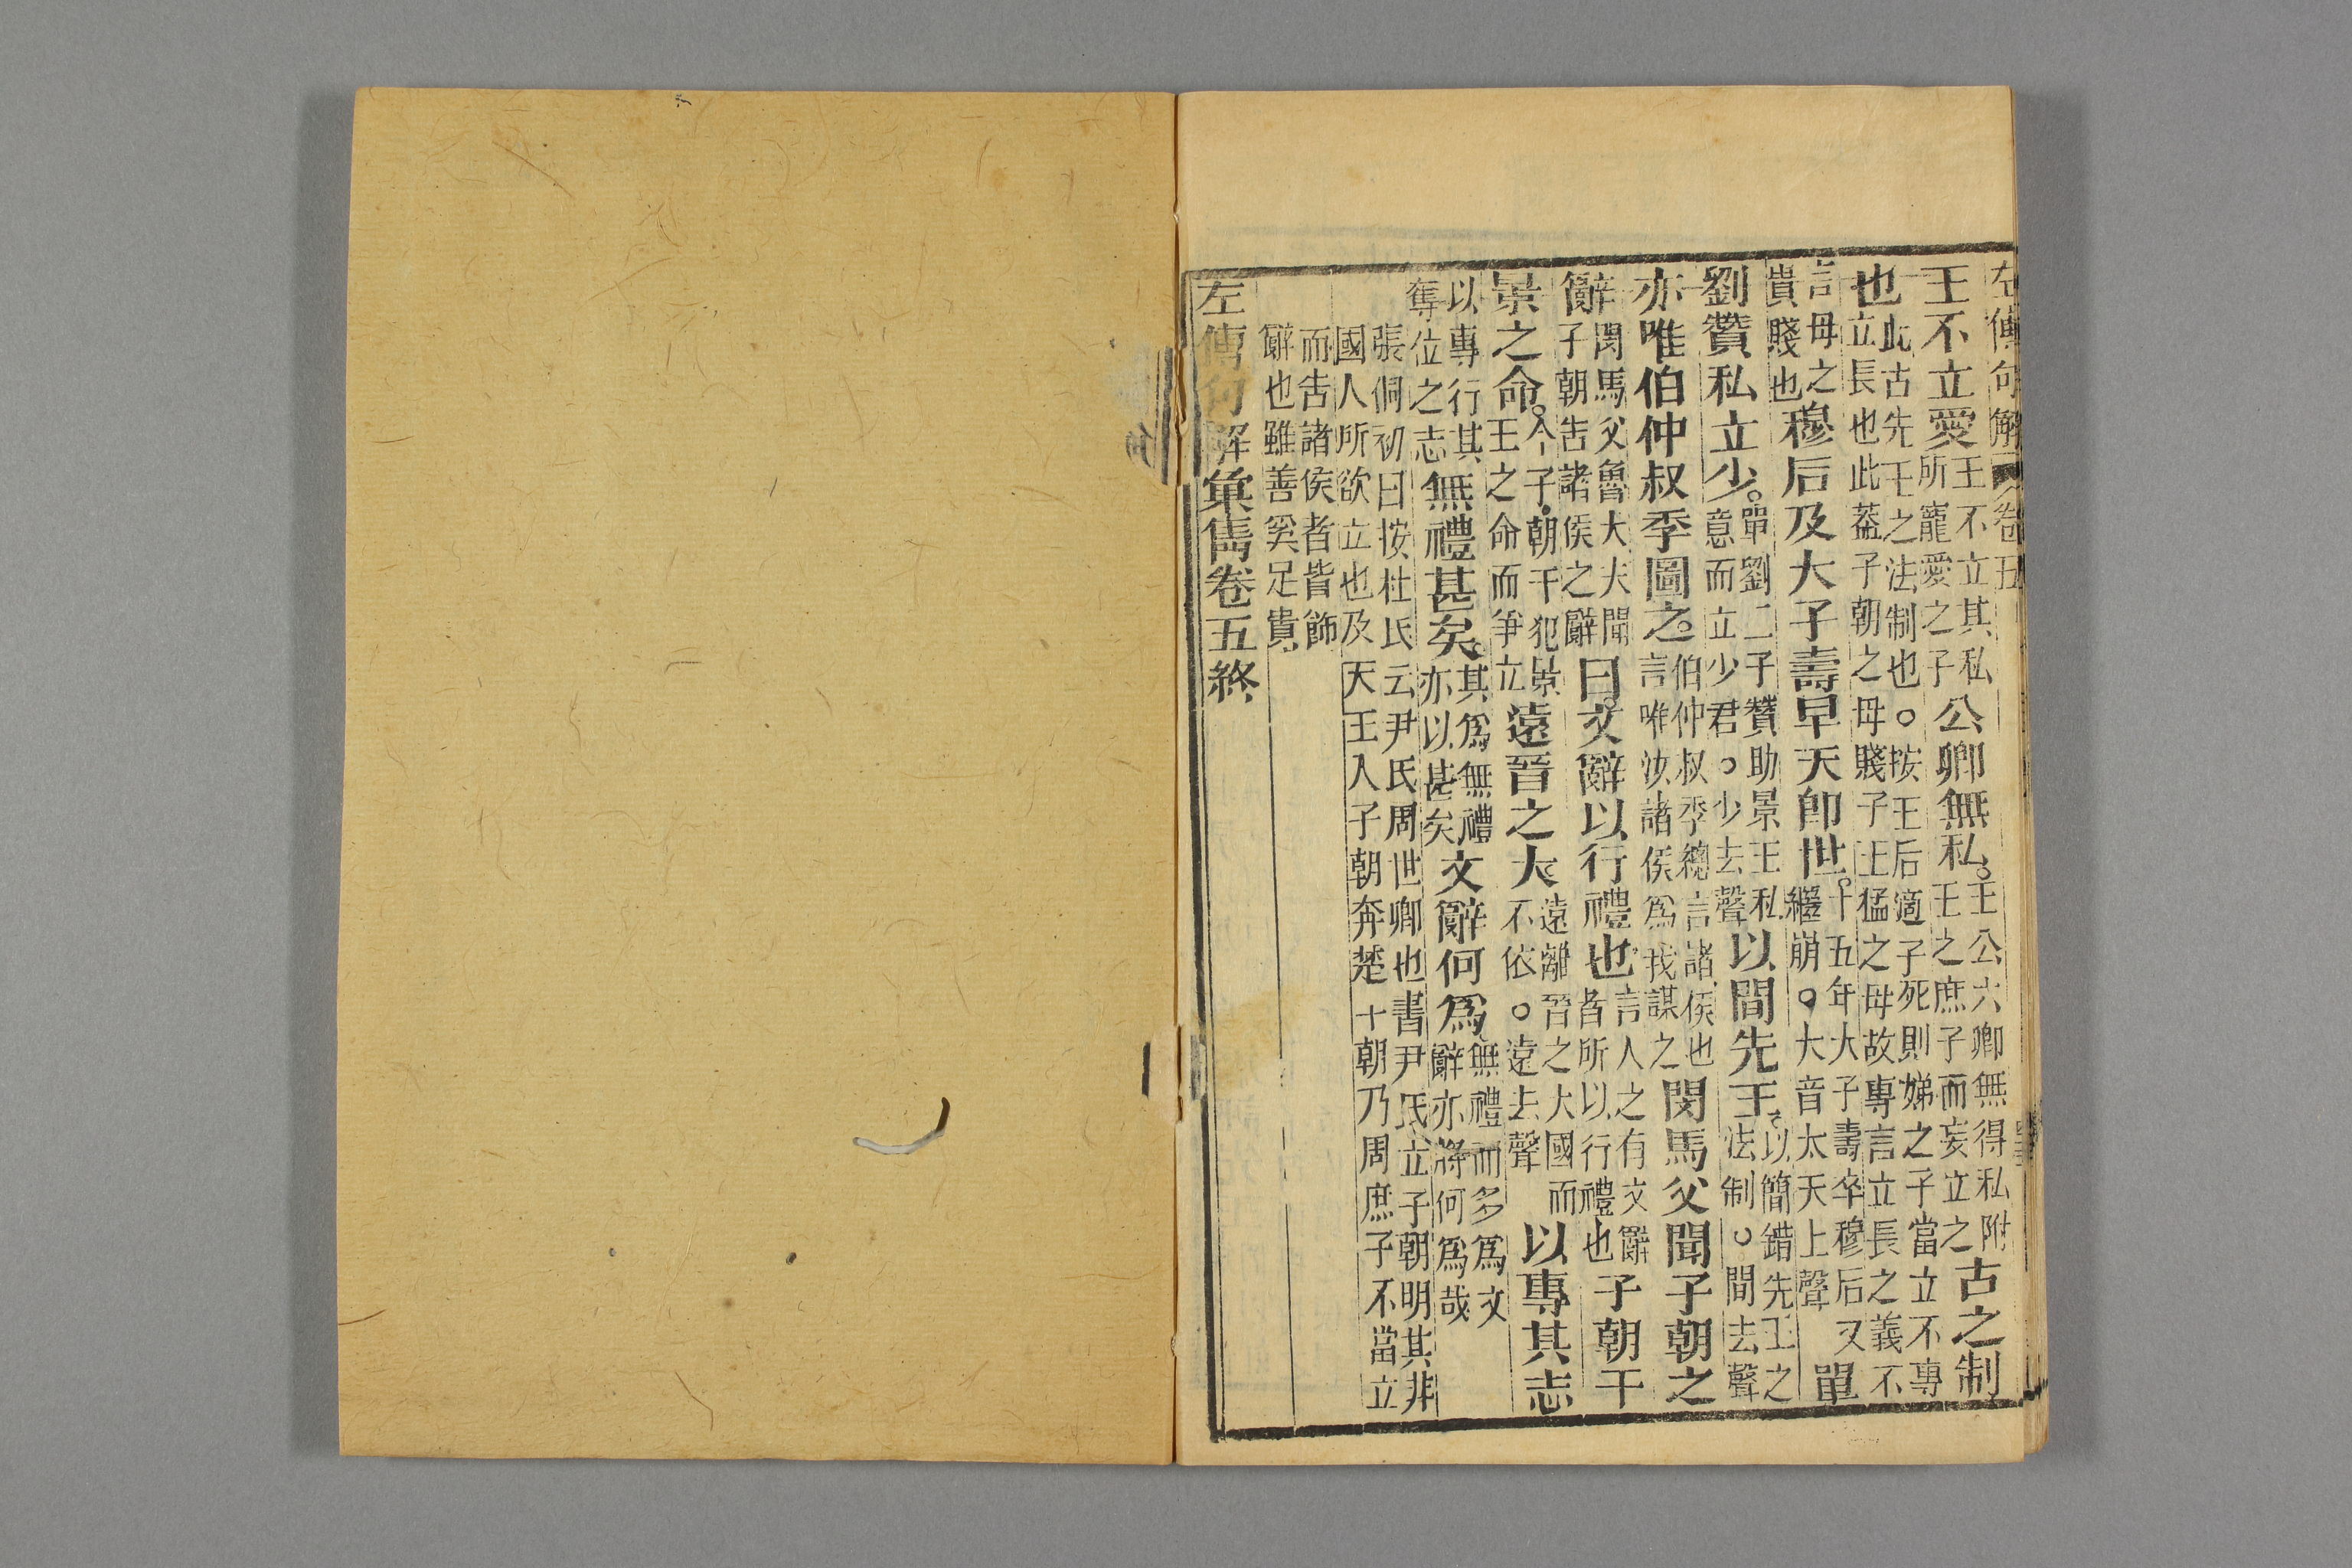 左傳句解 卷五
王不立愛王不立其私所寵愛之子公卿無私王公六卿無得私附王之庶子而妄立之古之制
也此古先王之法制也○按王后適子死則娣之子當立不專立長也此葢子朝之母賤子王猛之母故專言立長之義不
言母之貴賤也穆后及大子壽早夭卽世十五年大子壽卒穆后又繼崩○大音太夭上聲單
劉贊私立少單劉二子贊助景王私意而立少君○少去聲以間先王以簡錯先王之法制○間去聲
亦唯伯仲叔季圖之伯仲叔季總言諸侯也言唯汝諸侯爲我謀之閔馬父聞子朝之
辭閔馬父魯大夫聞子朝告諸侯之辭曰文辭以行禮也言人之有文辭者所以行禮也子朝干
景之命子朝干犯景王之命而爭立遠晉之大遠離晉之大國而不依○遠去聲以專其志
以專行其奪位之志無禮甚矣其爲無禮亦以甚矣文辭何爲無禮而多爲文辭亦將何爲哉
張侗初曰按杜氏云尹氏周世卿也書尹氏立子朝明其非
國人所欲立也及天王入子朝奔楚十朝乃周庶子不當立
而告諸侯者皆飾
辭也雖善奚足貴
左傳句解彙雋卷五終